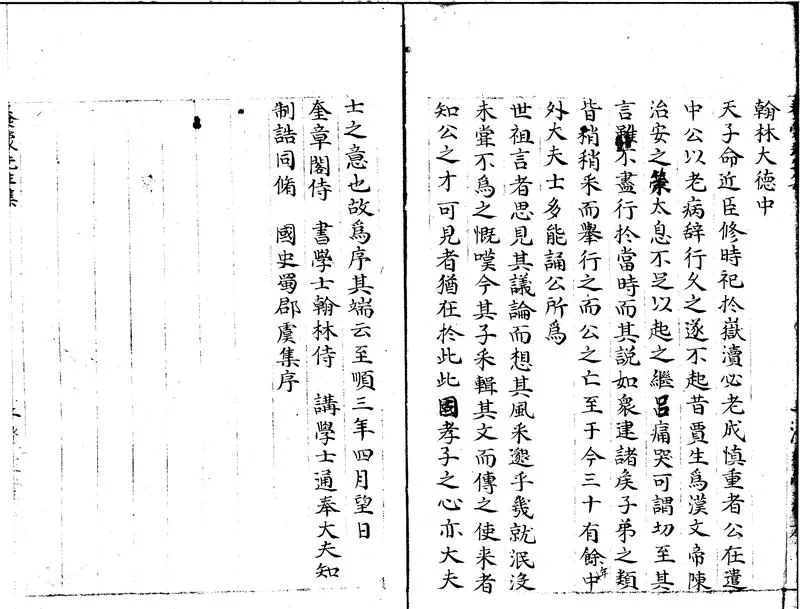 翰林大德中
天子命近臣修時祀扵嶽瀆必老成慎重者公在遣
中公以老病辞行久之遂不起昔賈生爲漢文帝陳
治安之策太息不足以起之繼呂痛哭可謂切至其
言雖不盡行扵當時而其説如衆建諸侯子弟之類
皆稍稍采而舉行之而公之亡至于今三十有餘年中
外大夫士多能誦公所爲
世祖言者思見其議論而想其風采邈乎幾就泯沒
未甞不爲之慨嘆今其子采輯其文而傳之使来者
知公之才可見者猶在扵此此國孝子之心亦大夫
士之意也故爲序其端云至順三年四月望日
奎章閣侍 書學士翰林侍 講學士通奉大夫知
制誥同脩 國史蜀郡虞集序